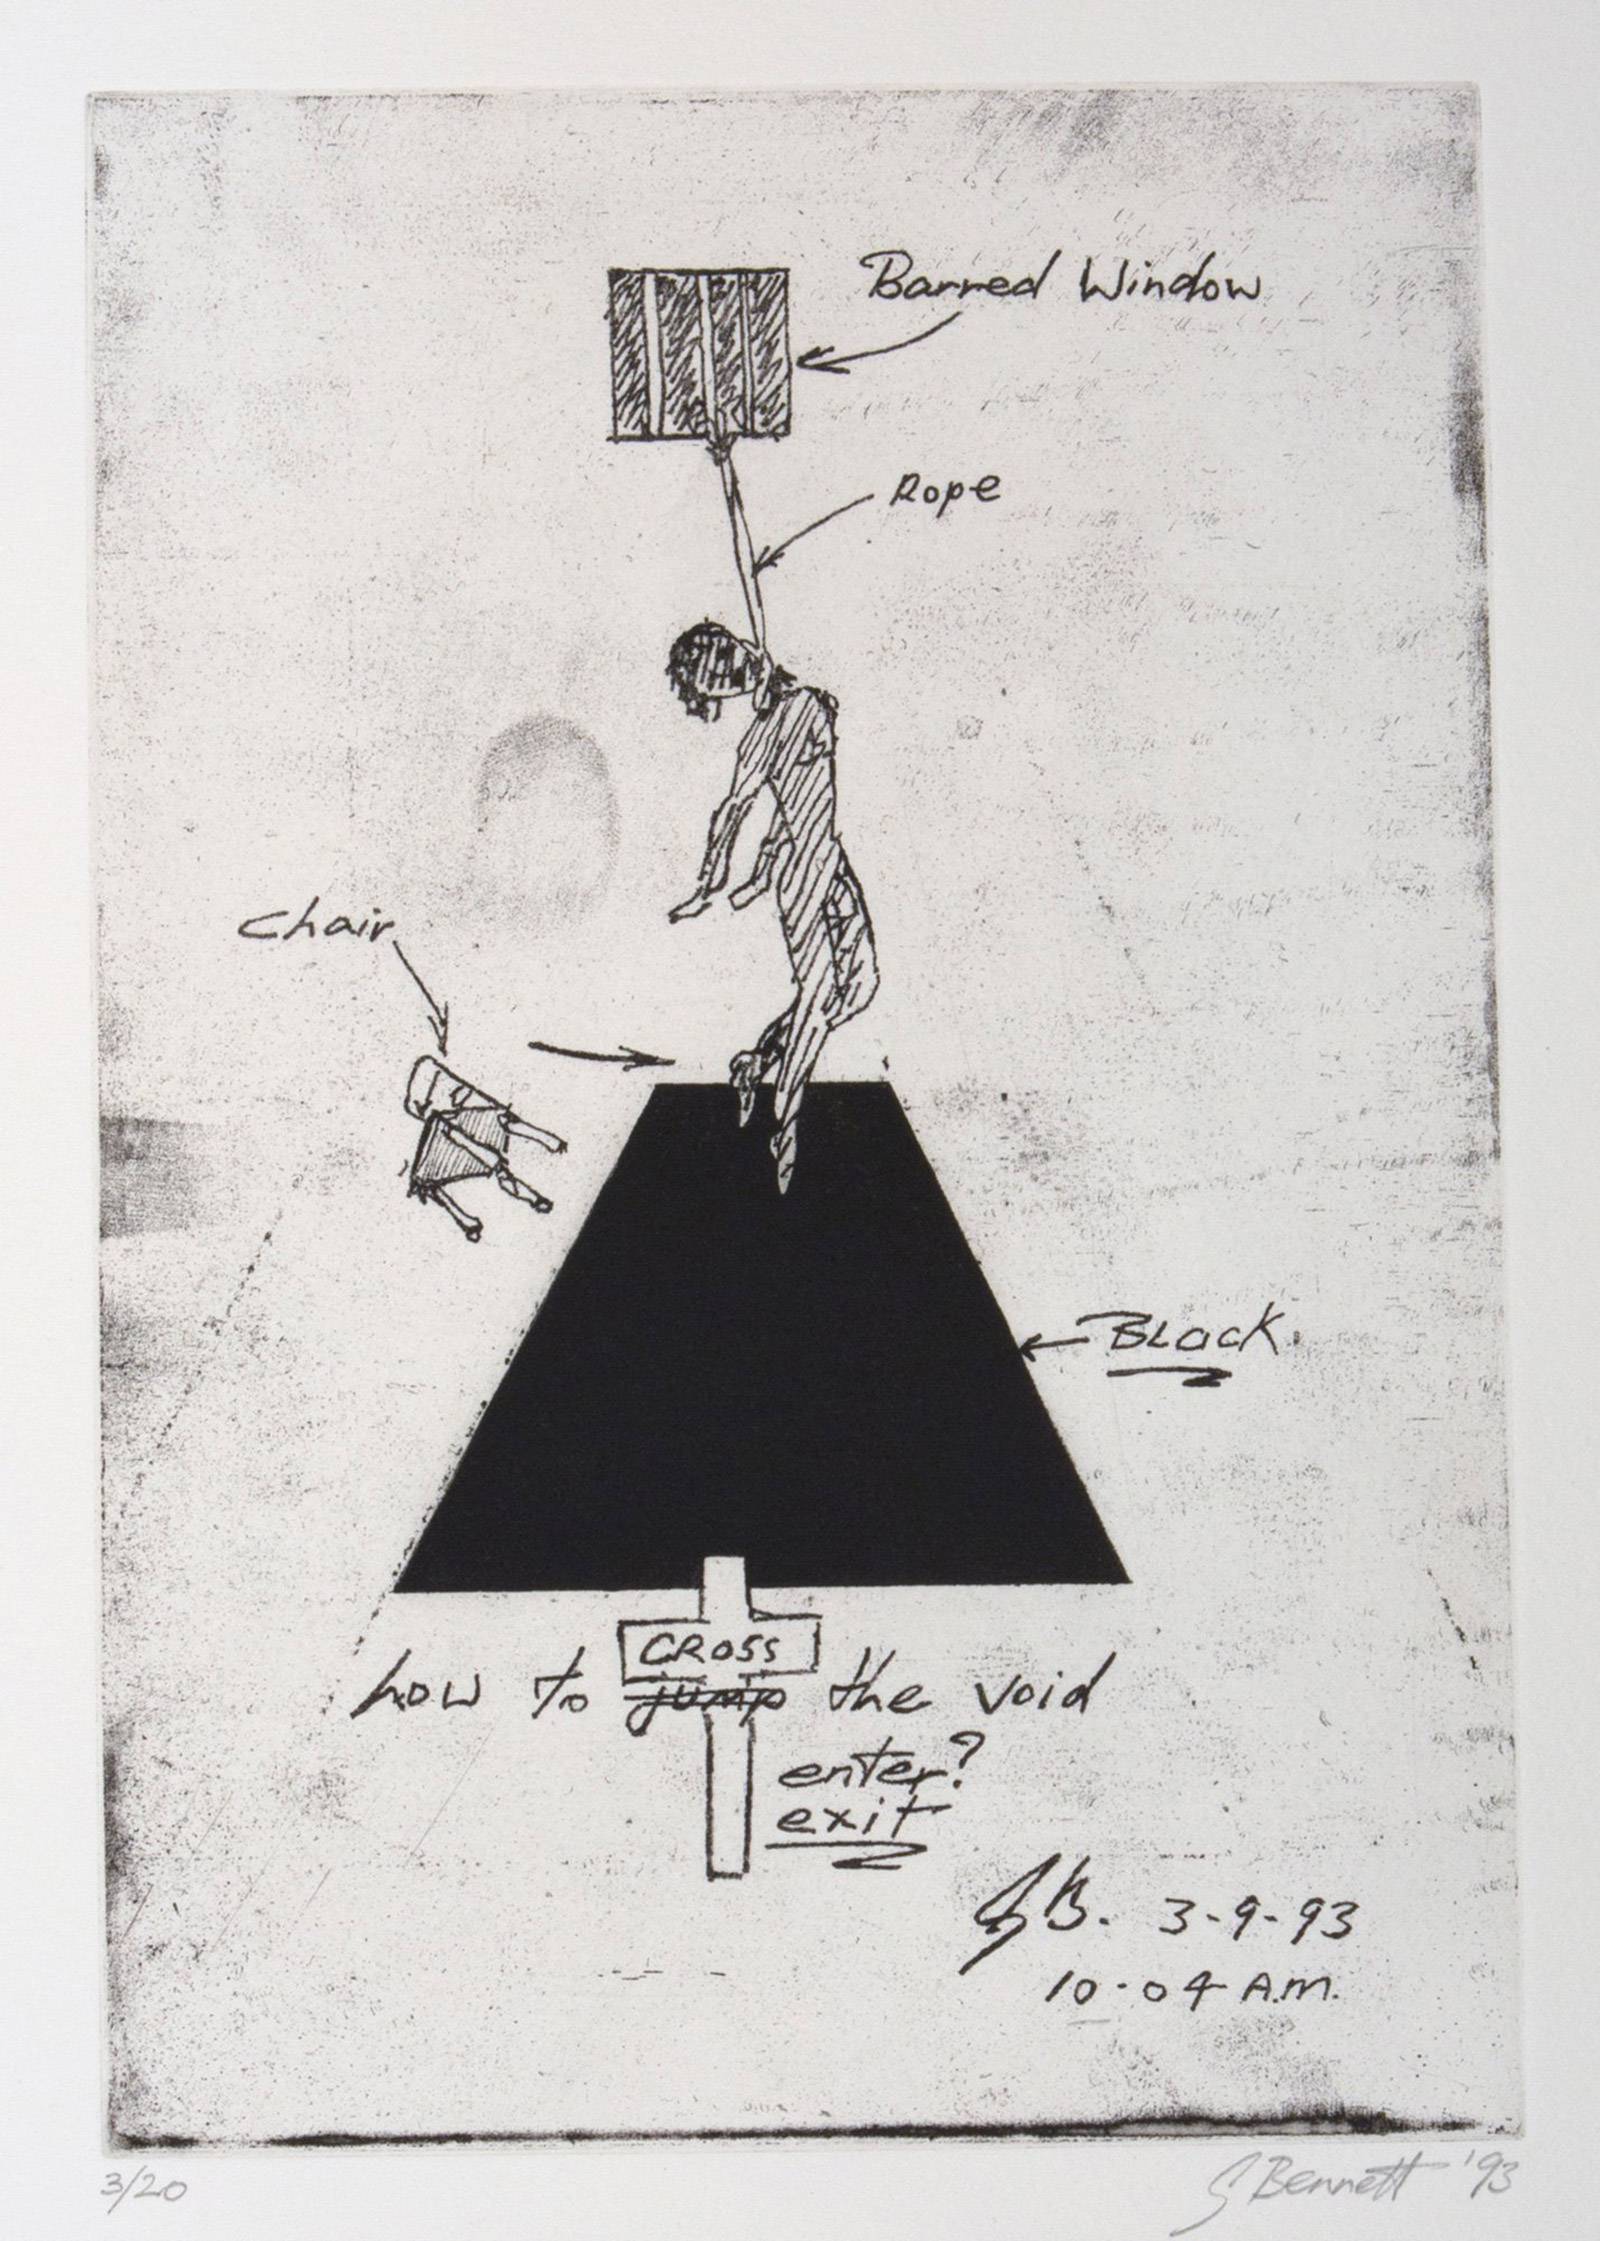 Barred Window
Rope
Chair
Black
CROSS
how to jump the void
enter?
exit
GB. 3-9-93
10-04 A.M.
3/20
G Bennett '93